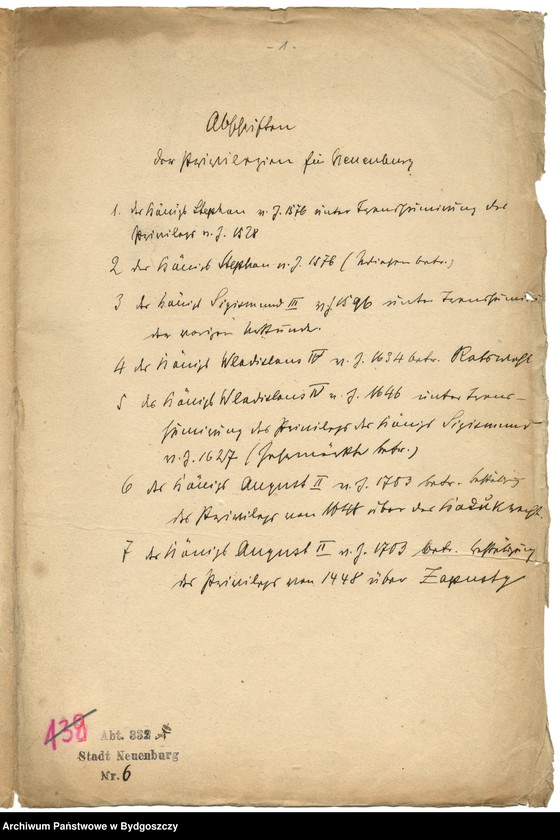 - 1 -
Abschriften
der Privilegien für Neuenburg
1. des Königs Stephan v. J. 1576 unter Transsumierung des
Privilegs v. J. 1528
2 des Königs Stephan v. J. 1578 ( betr.)
3 des Königs Sigismund III v. J. 1596 unter
der vorigen Urkunde.
4 des Königs Wladislaus IV v. J. 1634 betr. Ratswahl
5 des Königs Wladislaus IV v. J. 1646 unter Trans-
sumierung des Privilegs des Königs Sigismund
v. J. 1627 (Jahrmärkte betr.)
6 des Königs August II v. J. 1703 betr. Bestätigung
des Privilegs von über das
7 des Königs August II v. J. 1703 betr. Bestätigung
des Privilegs von 1448 über Zapusty
138
Abt. 332
Stadt Neuenburg
Nr. 6
Archiwum Państwowe w Bydgoszczy